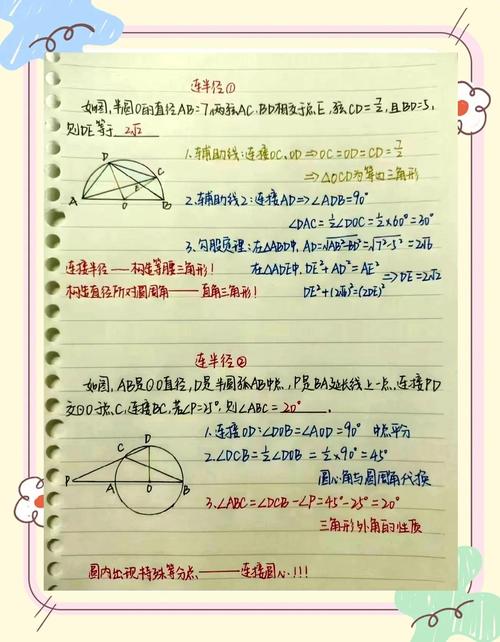 连半径①
如图,半圆O的直径AB=7,两弦AC、BD相交于点E,弦CD=7/2,且BD=5,
则DE等于 2√2
1.辅助线:连接OC、OD ⇒ OC=OD=CD=7/2
⇒ △OCD为等边三角形
D
C
E
A
O
B
2.辅助线2:连接AD ⇒ ∠ADB=90°
∠DAC=1/2∠DOC=1/2×60°=30°
3.勾股定理:在△ABD中,AD=√AB²-BD²=√7²-5²=2√6
在△ADE中,DE²+AD²=AE²
⇒DE=2√2
DE²+(2√6)²=(2DE)²
连接半径——构造等腰三角形!
构造直径所对圆周角——直角三角形!
连半径②
如图,AB是⊙O直径,D是半圆弧AB中点,P是BA延长线上一点,连接PD
交⊙O于点C,连接BC,若∠P=25°,则∠ABC= 20° .
1.连接OD:∠DOB=∠AOD=90° 中点平分
2.∠DCB=1/2∠DOB=1/2×90°=45°
圆心角与圆周角代换
3.∠ABC=∠DCB-∠P=45°-25°=20°
三角形外角的性质
D
C
P
A
O
B
圆内出现特殊等分点——连接圆心!!!